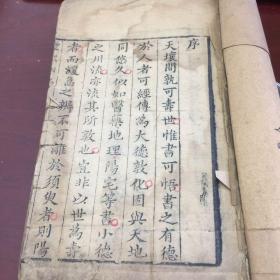 序
天壤間孰可壽世惟書可悟書之有德
於人者可經傳為大德敦化固與天地
同悠久似如醫藥地理陽宅等書小德
之川流亦流其所敦也豈非以世為壽
者而緩急之辨不可離於須臾者則陽